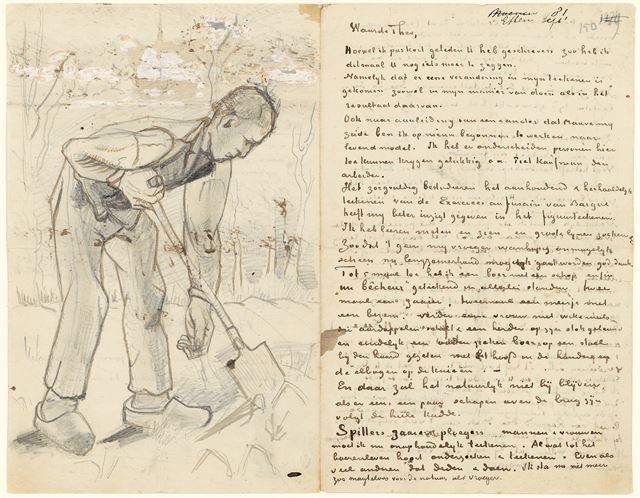 Etten Sept.
Waarde Theo,
Hoewel ik pas kort geleden U heb geschreven zoo heb ik
ditmaal U nog iets meer te zeggen.
Namelijk dat er eene verandering in mijn teekenen is
gekomen zoowel in mijn manier van doen als in het
resultaat daarvan.
Ook naar aanleiding van een en ander dat Mauve mij
zeide ben ik op nieuw begonnen te werken naar
levend model. Ik heb er onderscheiden personen hier
toe kunnen krijgen gelukkig o.a. Piet Kaufman den
arbeider.
Het zorgvuldig bestuderen het aanhoudend & herhaaldelijk
teekenen van de Exercices au fusain van Bargue
heeft mij beter inzigt gegeven in het figuurteekenen.
Ik heb leeren meten en zien en groote lijnen zoeken
Zoodat 't geen mij vroeger wanhopig onmogelijk
scheen nu langzamerhand mogelijk gaat worden god dank.
Tot 5 maal toe heb ik een boer met een schop enfin
un bêcheur geteekend in allerlei standen, twee
maal een zaaijer, tweemaal een meisje met
een bezem. Verder een vrouw met witte muts
die aardappels schilt & een herder op zijn stok geleund
en eindelijk een ouden zieken boer op een stoel
bij den haard gezeten met het hoofd in de handen en
de elbogen op de knieën.
En daar zal het natuurlijk niet bij blijven,
als er eens een paar schapen over de brug zijn
volgt de heele kudde.
Spitters zaaiers ploegers mannen & vrouwen
moet ik nu onophoudelijk teekenen. Al wat tot het
boerenleven hoort onderzoeken & teekenen. Even als
veel anderen dat deden & doen. Ik sta nu niet meer
zoo magteloos voor de natuur als vroeger.